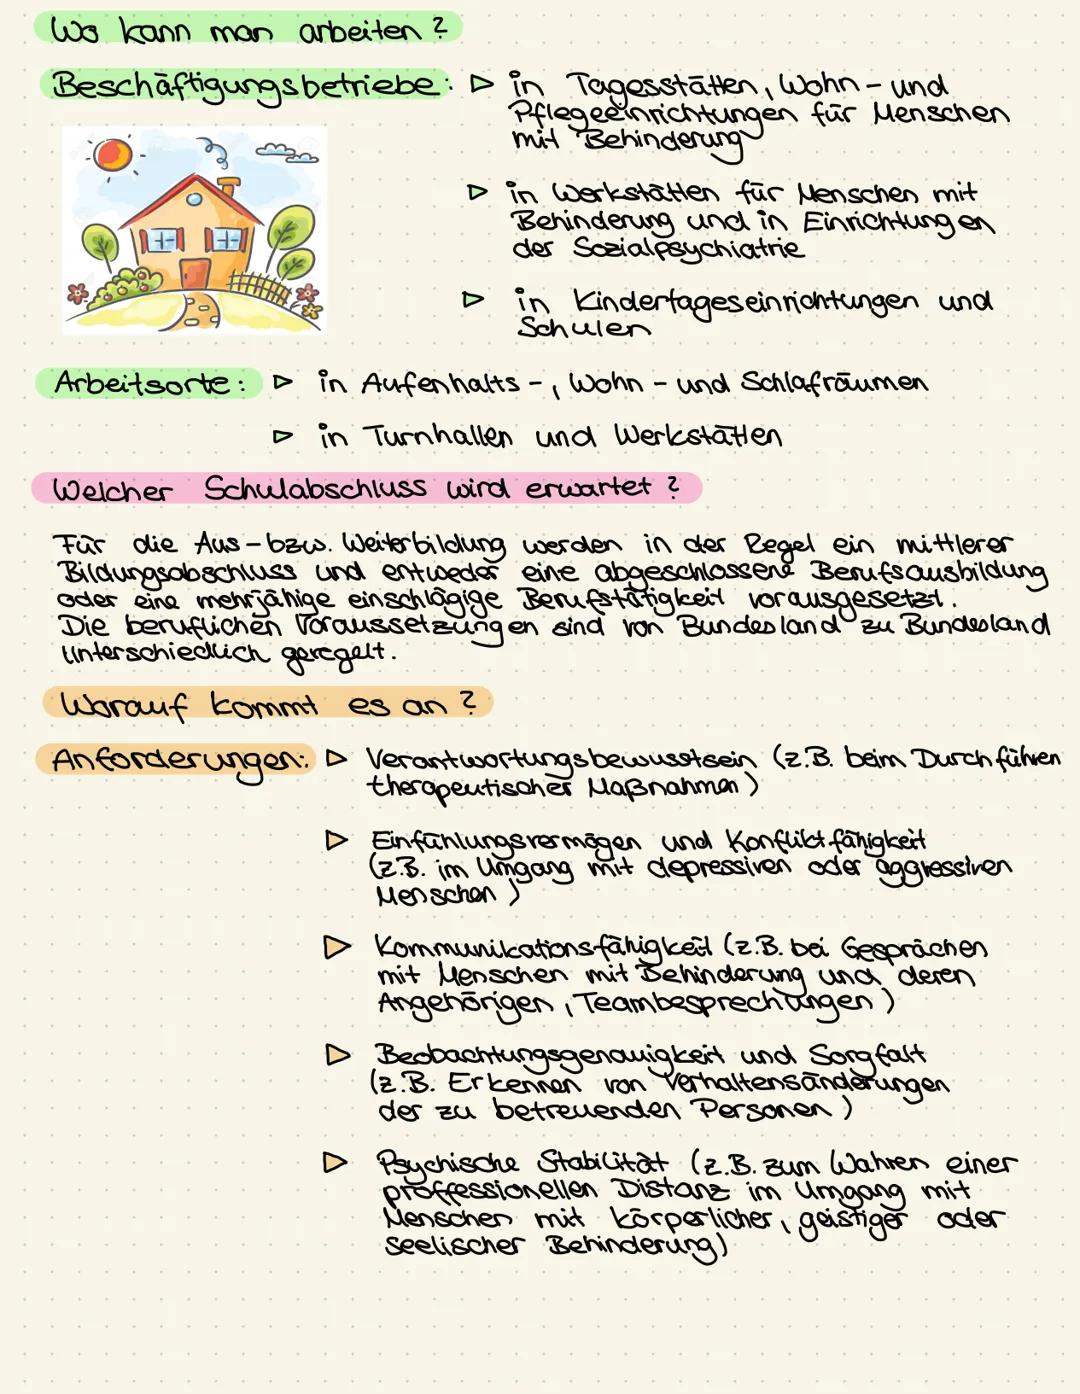 Wo kann man arbeiten?
Beschäftigungsbetriebe: ▷ in Tagesstätten, Wohn- und
Pflegeeinrichtungen für Menschen
mit Behinderung
▷ in Werkstätten für Menschen mit
Behinderung und in Einrichtungen
der Sozialpsychiatrie
▷ in Kindertageseinrichtungen und
Schulen
Arbeitsorte: ▷ in Aufenthalts-, Wohn- und Schlafräumen
▷ in Turnhallen und Werkstätten
Welcher Schulabschluss wird erwartet?
Für die Aus- bzw. Weiterbildung werden in der Regel ein mittlerer
Bildungsabschluss und entweder eine abgeschlossene Berufsausbildung
oder eine mehrjähige einschlägige Berufstätigkeit vorausgesetzt.
Die beruflichen Voraussetzungen sind von Bundesland zu Bundesland
unterschiedlich geregelt.
Worauf kommt es an?
Anforderungen: ▷ Verantwortungsbewusstsein (z.B. beim Durchführen
therapeutischer Maßnahmen)
▷ Einfühlungsvermögen und Konfliktfähigkeit
(z.B. im Umgang mit depressiven oder aggressiven
Menschen)
▷ Kommunikationsfähigkeit (z.B. bei Gesprächen
mit Menschen mit Behinderung und deren
Angehörigen, Teambesprechungen)
▷ Beobachtungsgenauigkeit und Sorgfalt
(z.B. Erkennen von Verhaltensänderungen
der zu betreuenden Personen)
▷ Psychische Stabilität (z.B. zum Wahren einer
proffessionellen Distanz im Umgang mit
Menschen mit körperlicher, geistiger oder
seelischer Behinderung)